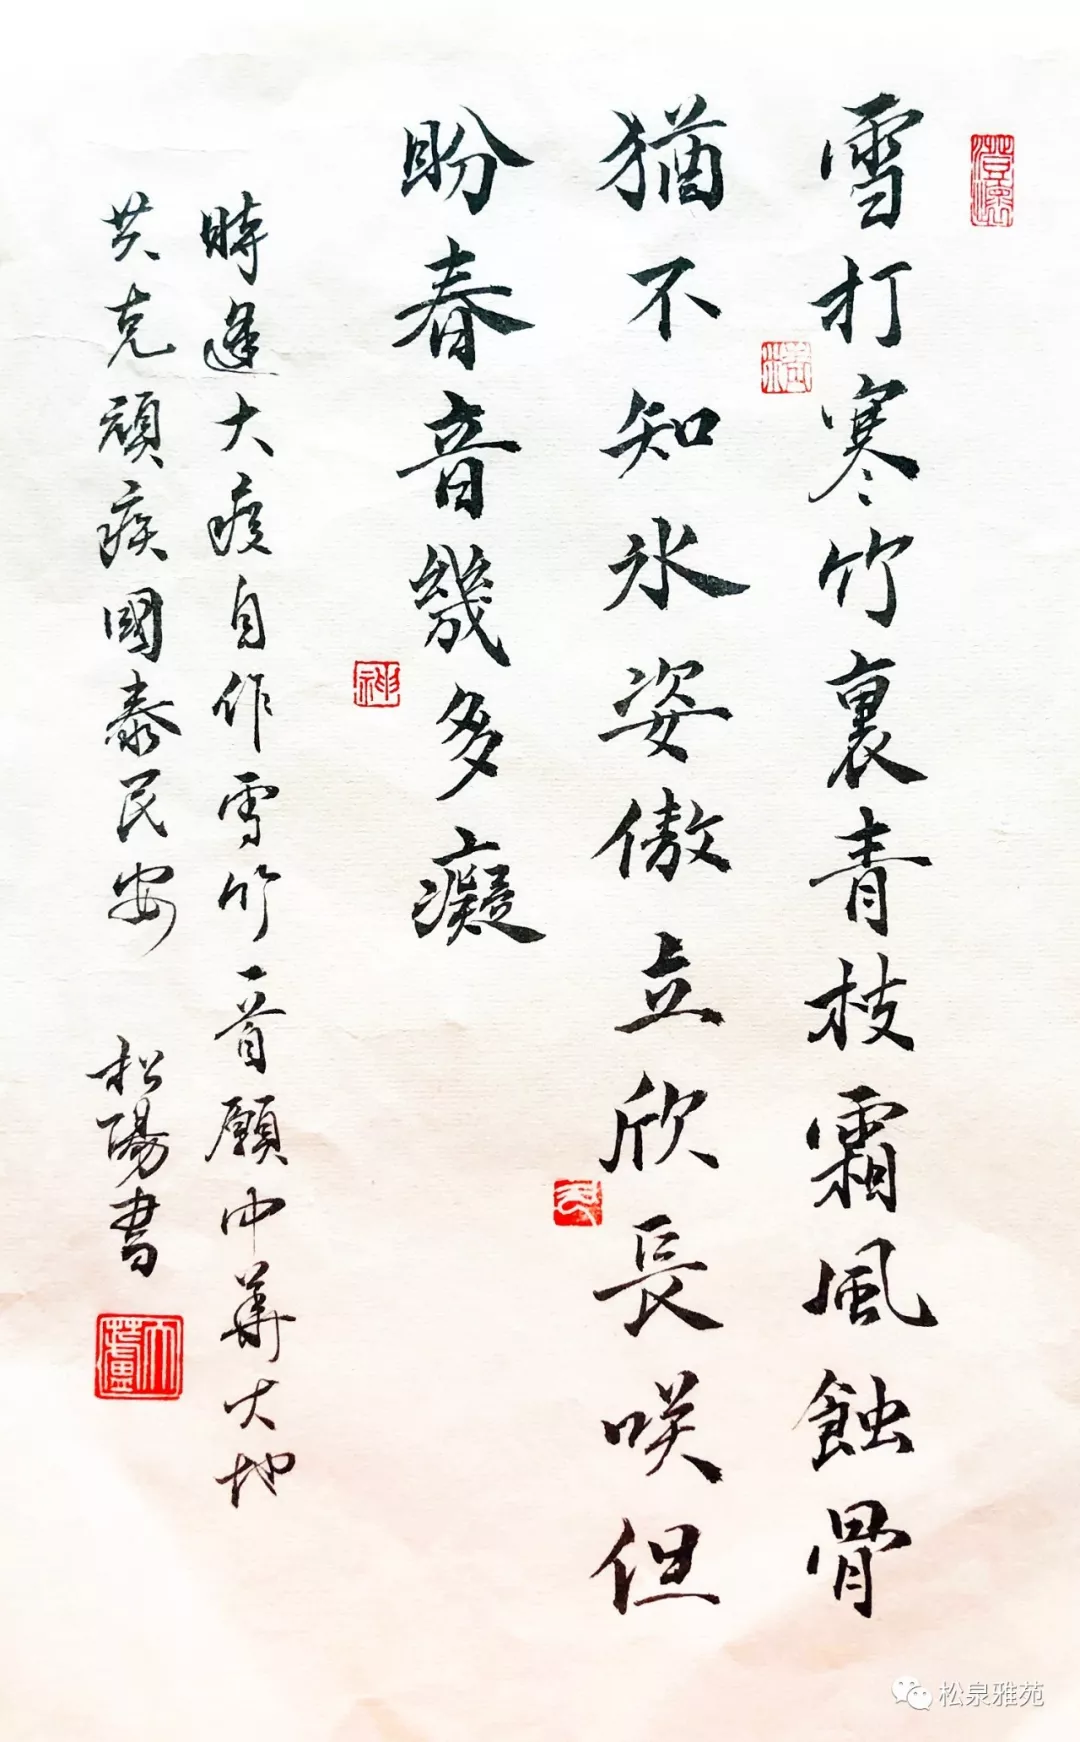 雪打寒竹裏青枝霜風蝕骨
猶不知氷姿傲立欣長咲但
盼春音幾多癡
時逢大疫自作雪竹一首願中華大地
共克頑疾國泰民安 松陽書
松泉雅苑